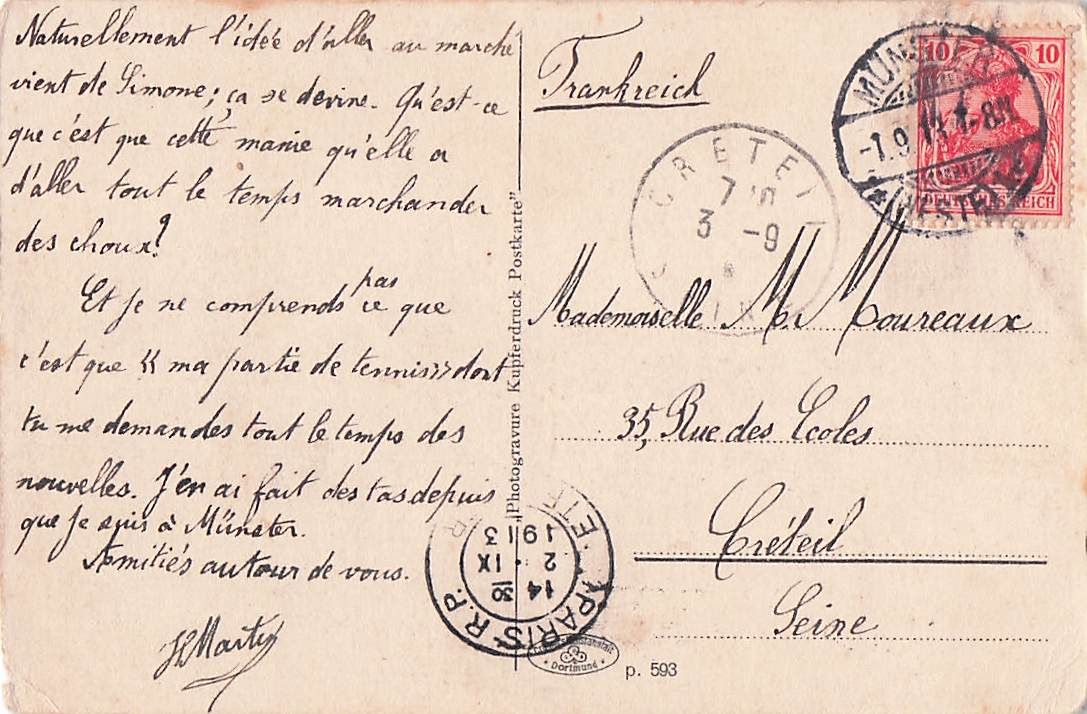 Naturellement l'idée d'aller au marché
vient de Simone; ça se devine. Qu'est-ce
que c'est que cette manie qu'elle a
d'aller tout le temps marchander
des choux?
Et je ne comprends pas ce que
c'est que « ma partie de tennis » dont
tu me demandes tout le temps des
nouvelles. J'en ai fait des tas depuis
que je suis à Münster.
Amitiés autour de vous.
Martin
"Photogravure Kupferdruck Postkarte"
Frankreich
10 10
DEUTSCHES REICH
MÜNSTER
-1.9.13
WESTF.
CRETEIL
7
3 -9
Mademoiselle M. Moureaux
35, Rue des Ecoles
Créteil
Seine
PARIS R.P.
14 30
2 · IX
1913
ETR
Dortmund
p. 593